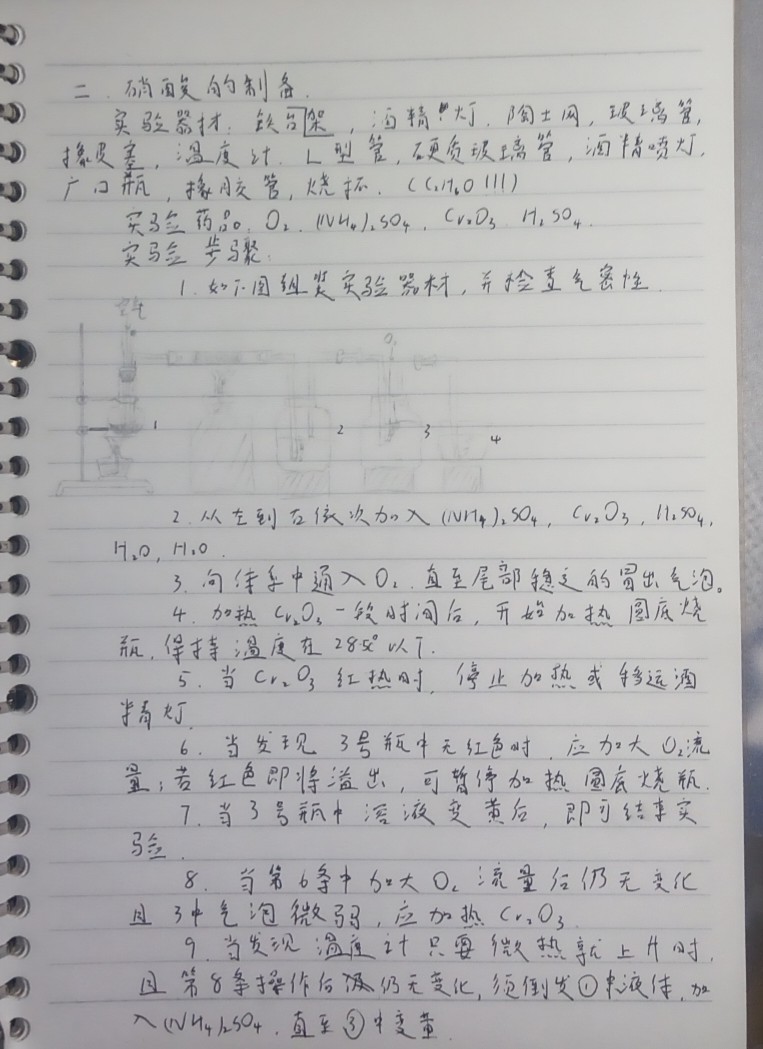 二. 硝酸的制备.
实验器材: 铁台架, 酒精灯. 陶土网, 玻璃管,
橡皮塞, 温度计. L型管, 硬质玻璃管, 酒精喷灯,
广口瓶, 橡胶管, 烧杯. (C₂H₆O !!!)
实验药品. O₂. (NH₄)₂SO₄. Cr₂O₃. H₂SO₄.
实验步骤:
1. 如下图组装实验器材, 并检查气密性.
空气
O₂
1 2 3 4
2. 从左到右依次加入 (NH₄)₂SO₄, Cr₂O₃, H₂SO₄,
H₂O, H₂O.
3. 向体系中通入 O₂. 直至尾部稳定的冒出气泡。
4. 加热 Cr₂O₃ 一段时间后, 开始加热圆底烧
瓶, 保持温度在 285° 以下.
5. 当 Cr₂O₃ 红热时, 停止加热或移远酒
精灯.
6. 当发现 3号瓶中无红色时. 应加大 O₂流
量; 若红色即将溢出, 可暂停加热圆底烧瓶.
7. 当3号瓶中溶液变黄后, 即可结束实
验.
8. 当第6条中加大 O₂ 流量后仍无变化
且 3中气泡微弱, 应加热 Cr₂O₃.
9. 当发现温度计只要微热就上升时.
且第8条操作后仍无变化, 须倒发①中液体. 加
入 (NH₄)₂SO₄. 直至③中变黄.